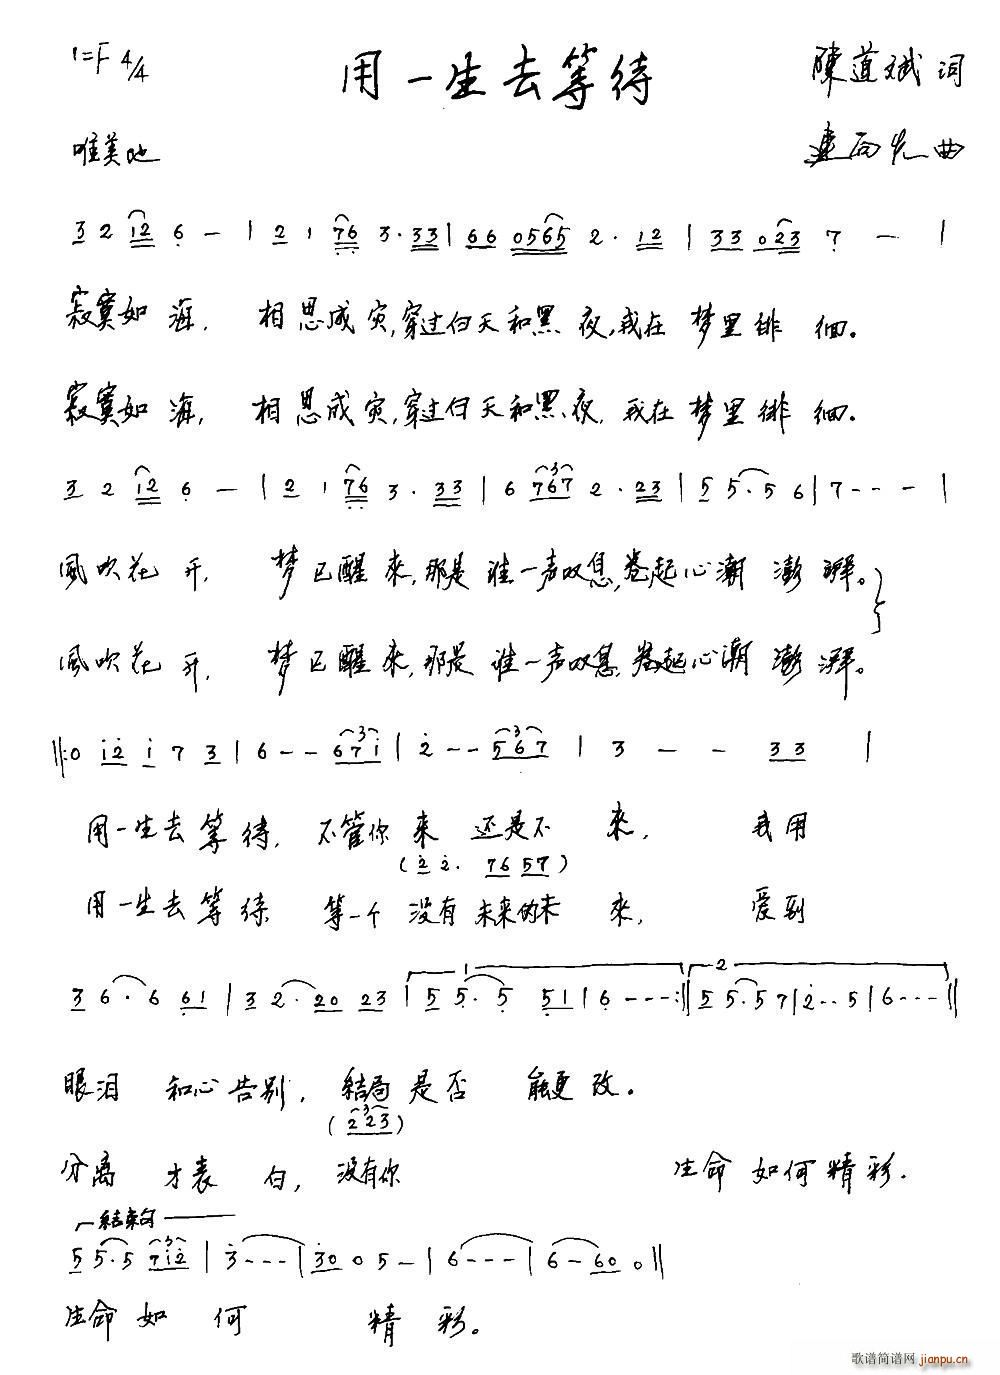 1=F 4/4
用一生去等待
陳道斌 词
唯美地
曲
3 2 12 6 — | 2 1 76 3· 33 | 66 0565 2· 12 | 33 023 7 — |
寂寞如海, 相思成灾,穿过白天和黑夜,我在梦里徘徊。
寂寞如海, 相思成灾,穿过白天和黑夜,我在梦里徘徊。
3 2 12 6 — | 2 1 76 3· 33 | 6 767 2· 23 | 5 5· 5 6 | 7 - - - |
風吹花开, 梦已醒来,那是谁一声叹息,卷起心潮澎湃。
風吹花开, 梦已醒来,那是谁一声叹息,卷起心潮澎湃。
||: 0 12 1 7 3 | 6 - - 671 | 2 - - 567 | 3 — — 33 |
用一生去等待, 不管你来还是不来, 我用
(2 2· 76 57)
用一生去等待 等一个没有未来的未來, 爱到
1 2
3 6· 6 61 | 3 2· 20 23 | 5 5· 5 51 | 6 - - - :|| 5 5· 5 7 | 2 - - 5 | 6 - - - ||
眼泪 和心告别, 结局是否 能更改。
(223)
分离 才表白, 没有你 生命如何精彩.
结束句
5 5· 5 712 | 3 - - - | 30 0 5 — | 6 - - - | 6 — 60 0 ||
生命如何 精彩。
歌谱简谱网
jianpu.cn